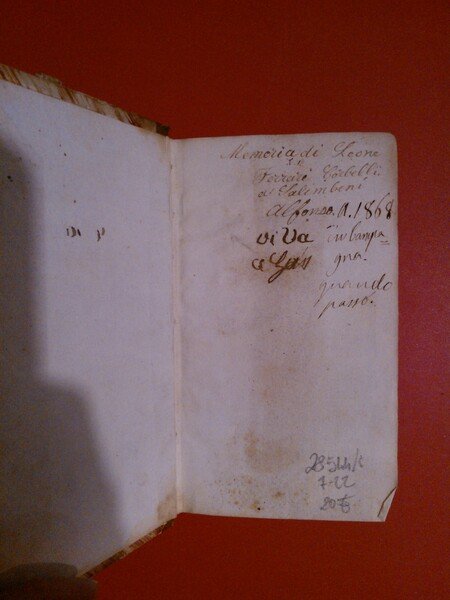 Memoria di Leone
Ferrari Corbelli
a Salimbeni
Alfonso. A. 1868
vi Va in campa=
a gna.
quando
passò.
28544/
7-22
20